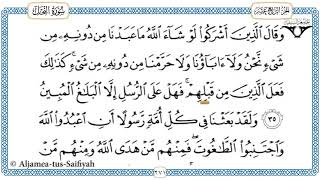 سورة النحل
الجزء الرابع عشر
وَقَالَ ٱلَّذِينَ أَشْرَكُوا۟ لَوْ شَآءَ ٱللَّهُ مَا عَبَدْنَا مِن دُونِهِۦ مِن
شَىْءٍ نَّحْنُ وَلَآ ءَابَآؤُنَا وَلَا حَرَّمْنَا مِن دُونِهِۦ مِن شَىْءٍ ۚ كَذَٰلِكَ
فَعَلَ ٱلَّذِينَ مِن قَبْلِهِمْ ۚ فَهَلْ عَلَى ٱلرُّسُلِ إِلَّا ٱلْبَلَٰغُ ٱلْمُبِينُ
٣٥ وَلَقَدْ بَعَثْنَا فِى كُلِّ أُمَّةٍ رَّسُولًا أَنِ ٱعْبُدُوا۟ ٱللَّهَ
وَٱجْتَنِبُوا۟ ٱلطَّٰغُوتَ ۖ فَمِنْهُم مَّنْ هَدَى ٱللَّهُ وَمِنْهُم مَّنْ
© Aljamea-tus-Saifiyah
٢٧١